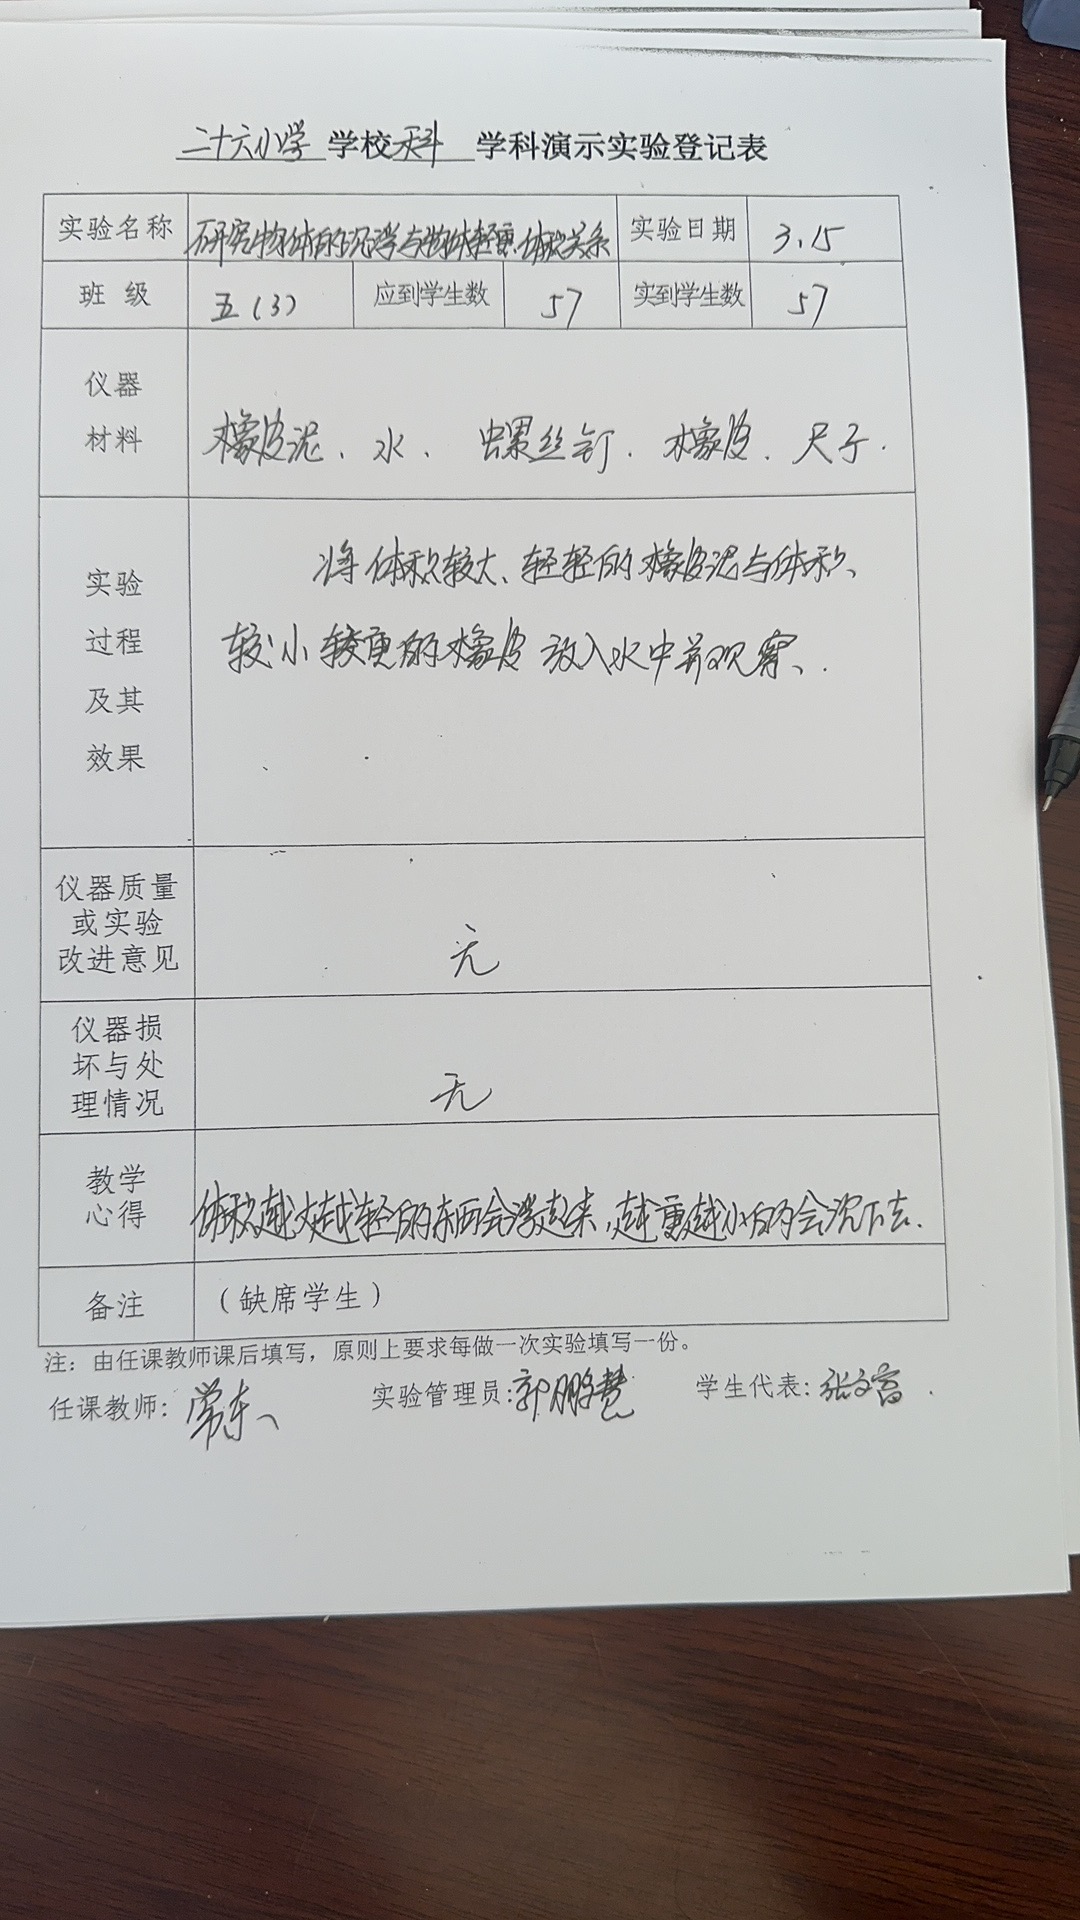 二十六小学 学校 科 学科演示实验登记表
实验名称 研究物体的沉浮与物体轻重、体积关系 实验日期 3.15
班 级 五(3) 应到学生数 57 实到学生数 57
仪器
材料
橡皮泥、水、螺丝钉、橡皮、尺子.
实验
过程
及其
效果
将体积较大、轻轻的橡皮泥与体积
较小较重的橡皮放入水中并观察、.
仪器质量
或实验
改进意见
无
仪器损
坏与处
理情况
无
教学
心得
体积越大越轻的东西会浮起来,越重越小的会沉下去.
备注 (缺席学生)
注: 由任课教师课后填写, 原则上要求每做一次实验填写一份。
任课教师: 常东 实验管理员: 郭鹏慧 学生代表: 张文